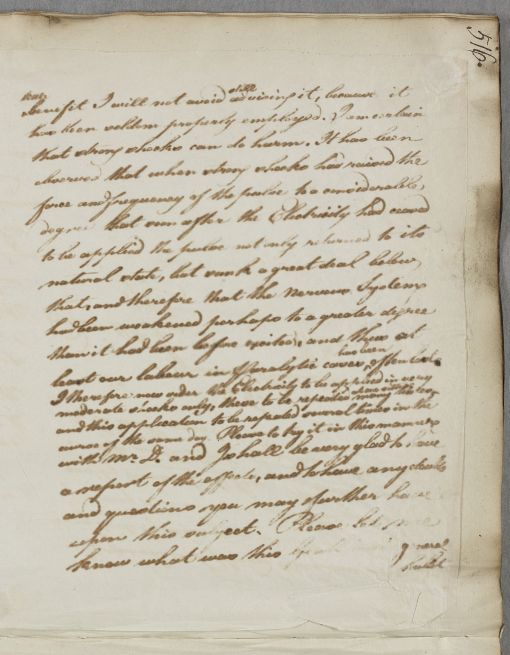 516.
benefit I will not avoid still advising it, because it
has been seldom properly employed. I am certain
that strong shocks can do harm. It has been
observed that when strong shocks has raised the
force and frequency of the pulse to a considerable
degree that soon after the Electricity had ceased
to be applied the pulse not only returned to its
natural state, but sunk a great deal below
that, and therefore that the Nervous System
had been weakened perhaps to a greater degree
than it had been before excited, and thus at
least our labour in Paralytic cases has been often lost
I therefore now order the Electricity to be applied in very
moderate shocks only, these to be repeated many times
and this application to be repeated several times in the
course of the same day. Please to try it in this manner
with Mr. D. and I shall be very glad to have
a report of the effects, and to have any doubts
and questions you may further have
upon this subject. Please let me
know what was this general
health